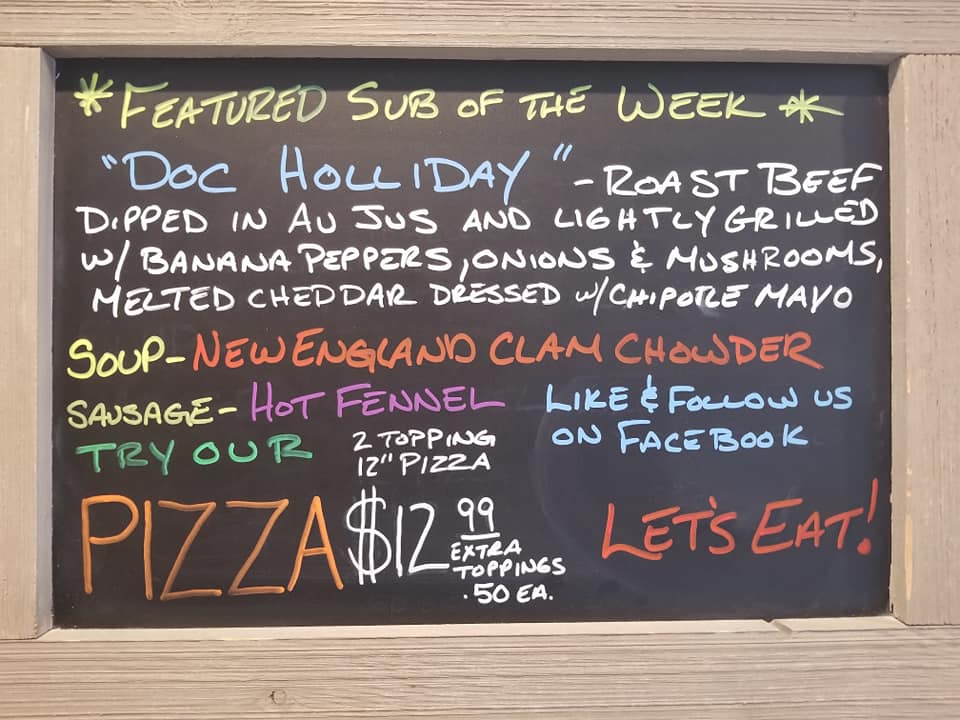 *FEATURED SUB OF THE WEEK*
"DOC HOLLIDAY" - ROAST BEEF
DIPPED IN AU JUS AND LIGHTLY GRILLED
W/ BANANA PEPPERS, ONIONS & MUSHROOMS,
MELTED CHEDDAR DRESSED W/CHIPOTLE MAYO
SOUP- NEW ENGLAND CLAM CHOWDER
SAUSAGE- HOT FENNEL
LIKE & FOLLOW US
ON FACEBOOK
TRY OUR
2 TOPPING
12" PIZZA
PIZZA $12 99
EXTRA
TOPPINGS
.50 EA.
LET'S EAT!